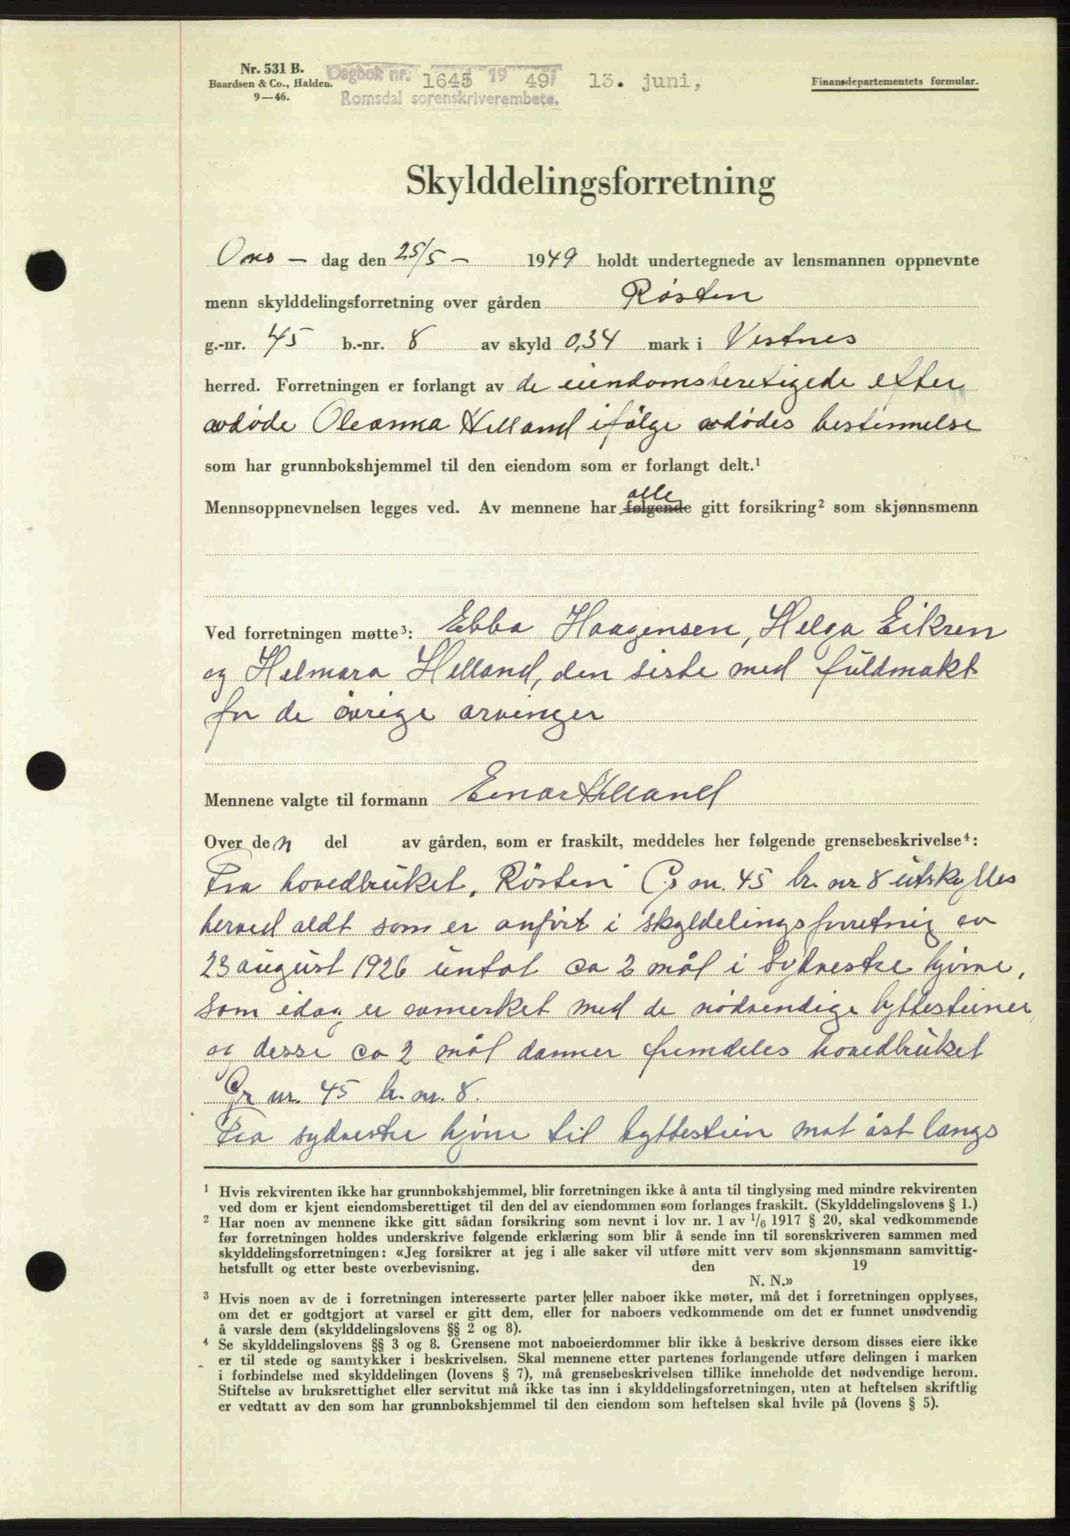 Nr. 531 B.
Baardsen & Co., Halden.
9—46.
Dagbok nr. 1645 1949 13. juni,
Romsdal sorenskriverembete.
Finansdepartementets formular.
Skylddelingsforretning
Ons – dag den 25/5 – 1949 holdt undertegnede av lensmannen oppnevnte
menn skylddelingsforretning over gården Røsten
g.-nr. 45 b.-nr. 8 av skyld 0,34 mark i Vestnes
herred. Forretningen er forlangt av de eiendomsberetigede efter
avdøde Oleanna Helland ifølge avdødes bestemmelse
som har grunnbokshjemmel til den eiendom som er forlangt delt.¹
Mennsoppnevnelsen legges ved. Av mennene har følgende alle gitt forsikring² som skjønnsmenn
Ved forretningen møtte³: Ebba Haagensen, Helga Eikren
og Helmara Helland, den siste med fuldmakt
for de øvrige arvinger
Mennene valgte til formann Einar Helland
Over den del av gården, som er fraskilt, meddeles her følgende grensebeskrivelse⁴:
Fra hovedbruket, "Røsten" Gr nr. 45 br. nr 8 utskylles
herved aldt som er anført i skyldelingsforretnig av
23 august 1926 untat ca 2 mål i Sydvestre hjørne,
som idag er avmerket med de nødvendige byttesteiner,
og desse ca 2 mål danner fremdeles hovedbruket
Gr nr. 45 br. nr. 8.
Fra sydvestre hjørne til byttestein mot øst langs
¹ Hvis rekvirenten ikke har grunnbokshjemmel, blir forretningen ikke å anta til tinglysing med mindre rekvirenten
ved dom er kjent eiendomsberettiget til den del av eiendommen som forlanges fraskilt. (Skylddelingslovens § 1.)
² Har noen av mennene ikke gitt sådan forsikring som nevnt i lov nr. 1 av 1/6 1917 § 20, skal vedkommende
før forretningen holdes underskrive følgende erklæring som blir å sende inn til sorenskriveren sammen med
skylddelingsforretningen: «Jeg forsikrer at jeg i alle saker vil utføre mitt verv som skjønnsmann samvittig-
hetsfullt og etter beste overbevisning. den 19
N. N.»
³ Hvis noen av de i forretningen interesserte parter eller naboer ikke møter, må det i forretningen opplyses,
om det er godtgjort at varsel er gitt dem, eller for naboers vedkommende om det er funnet unødvendig
å varsle dem (skylddelingslovens §§ 2 og 8).
⁴ Se skylddelingslovens §§ 3 og 8. Grensene mot naboeierdommer blir ikke å beskrive dersom disses eiere ikke
er til stede og samtykker i beskrivelsen. Skal mennene etter partenes forlangende utføre delingen i marken
i forbindelse med skylddelingen (lovens § 7), må grensebeskrivelsen tillike inneholde det nødvendige herom.
Stiftelse av bruksrettighet eller servitut må ikke tas inn i skylddelingsforretningen, uten at heftelsen skriftlig
er vedtatt av den som har grunnbokshjemmel til den eiendom som heftelsen skal hvile på (lovens § 5).